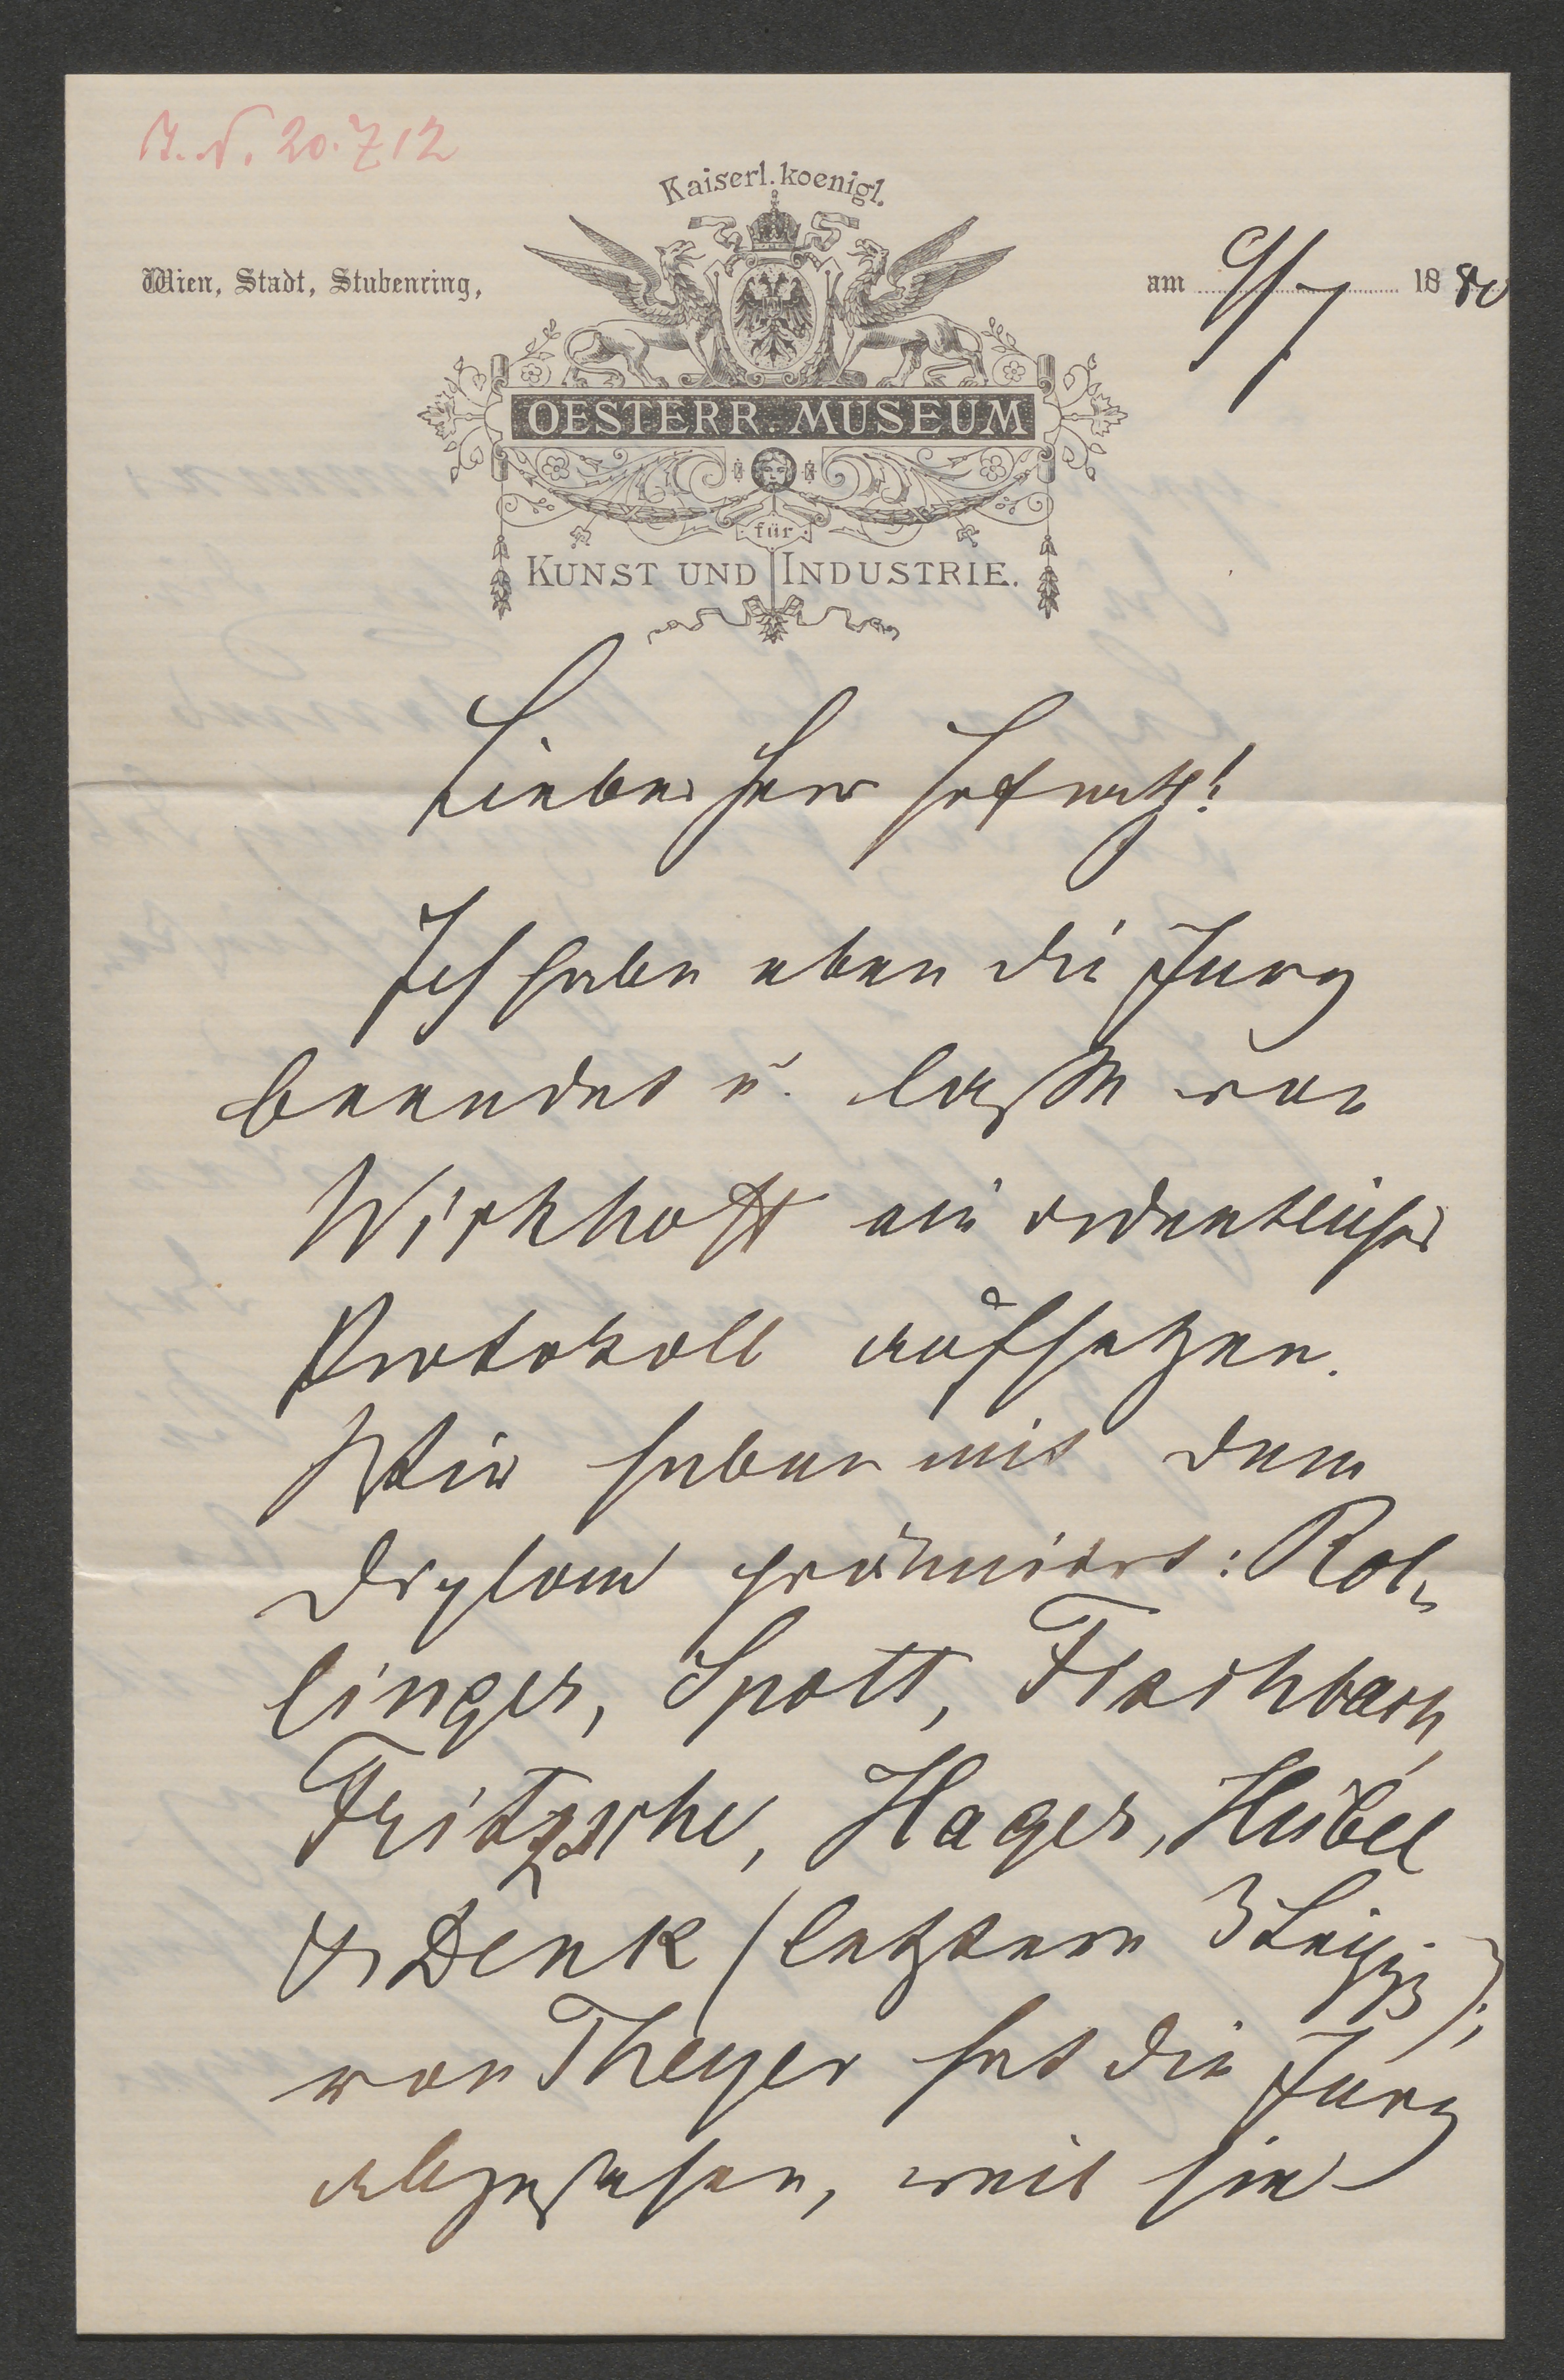 J. N. 20.712
Kaiserl. koenigl.
Wien, Stadt, Stubenring,
am 9/7 1880
OESTERR. MUSEUM
für
KUNST UND INDUSTRIE.
Lieber Herr Hofrath!
Ich habe eben die Jury
beendet u. lasse von
Wickhoff ein ordentliches
Protokoll aufsetzen.
Wir haben mit dem
Diplom prämiirt: Rol-
linger, Spott, Fischbach,
Fritzsche, Hager, Hübel
& Denk (letztere 3 Leipzig);
von Theyer hat die Jury
abgesehen, weil sie